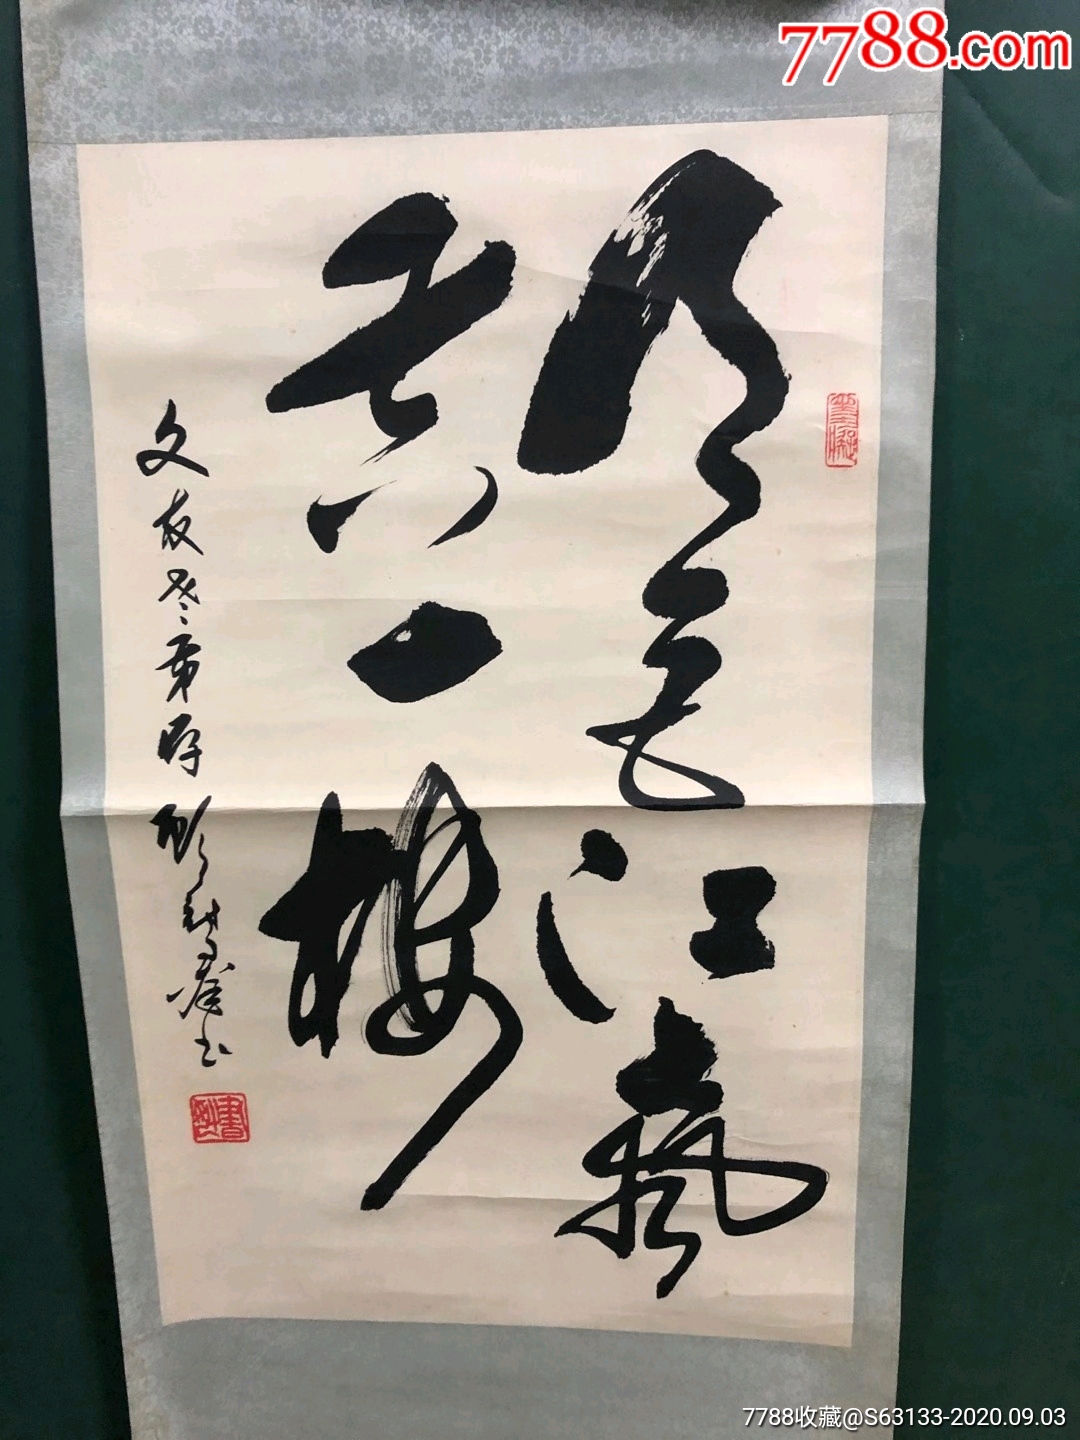 7788.com
月色江聲
共一樓
文友老弟存
书
7788收藏@S63133-2020.09.03